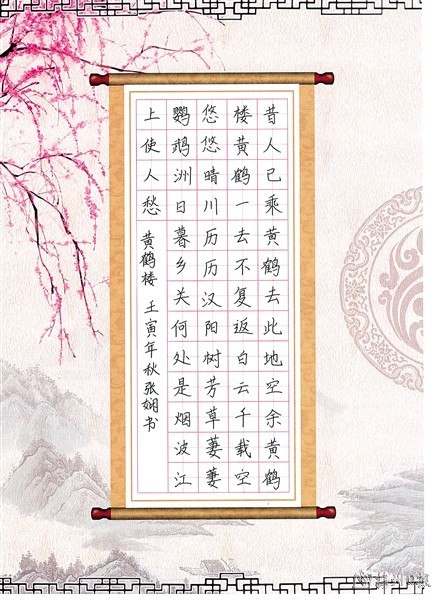 昔人已乘黄鹤去此地空余黄鹤
楼黄鹤一去不复返白云千载空
悠悠晴川历历汉阳树芳草萋萋
鹦鹉洲日暮乡关何处是烟波江
上使人愁 黄鹤楼 壬寅年秋张娴书